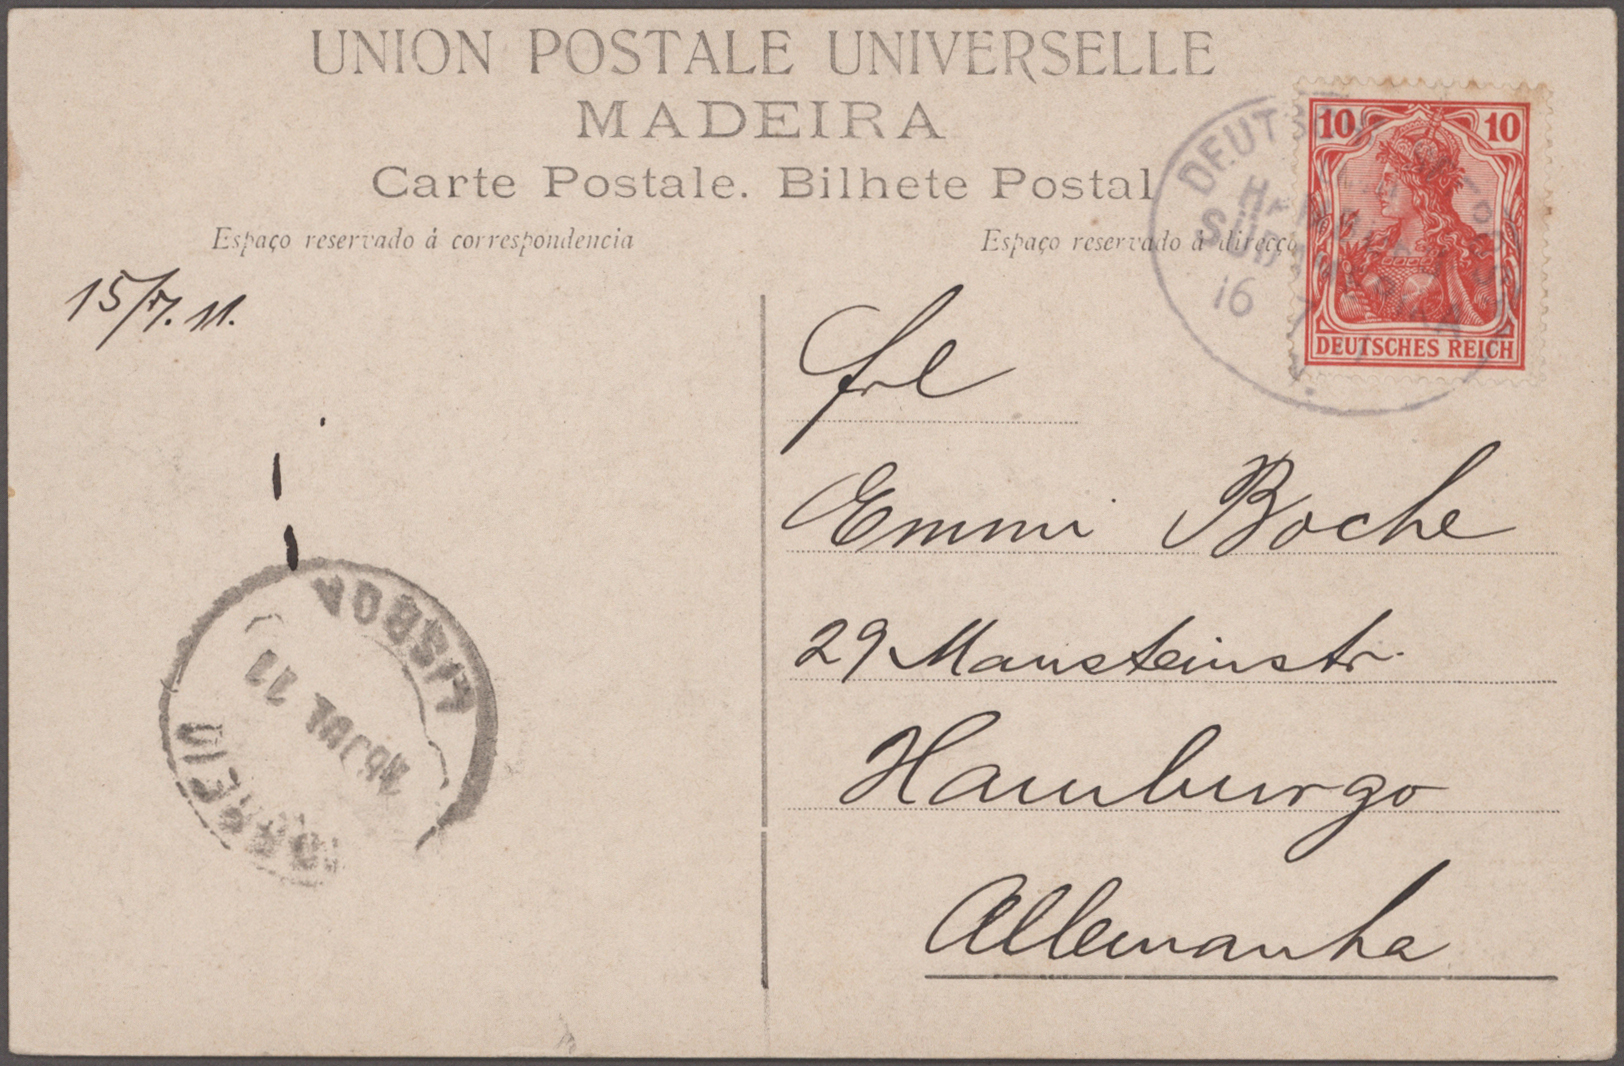 UNION POSTALE UNIVERSELLE
MADEIRA
Carte Postale. Bilhete Postal
Espaço reservado á correspondencia
Espaço reservado á direcçã
15/7. 11.
10 10
DEUTSCHES REICH
DEUTSCHE SEEPOST
HAMBURG
SÜDAMERIKA
16 7
Frl
Emmi Boche
29 Mansteinstr.
Hamburgo
Allemanha
LISBOA
JUL 11
CORREIO